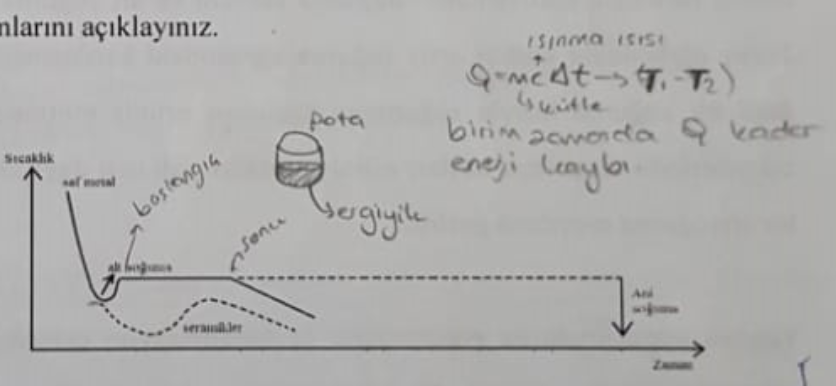 nlarını açıklayınız.
ısınma ısısı
Q=mcΔt→(T₁-T₂)
↳kütle
birim zamanda Q kadar
enerji kaybı
pota
sergiyik
Sıcaklık
saf metal
başlangıç
alt soğuma
sonu
seramikler
Ani
soğuma
Zaman